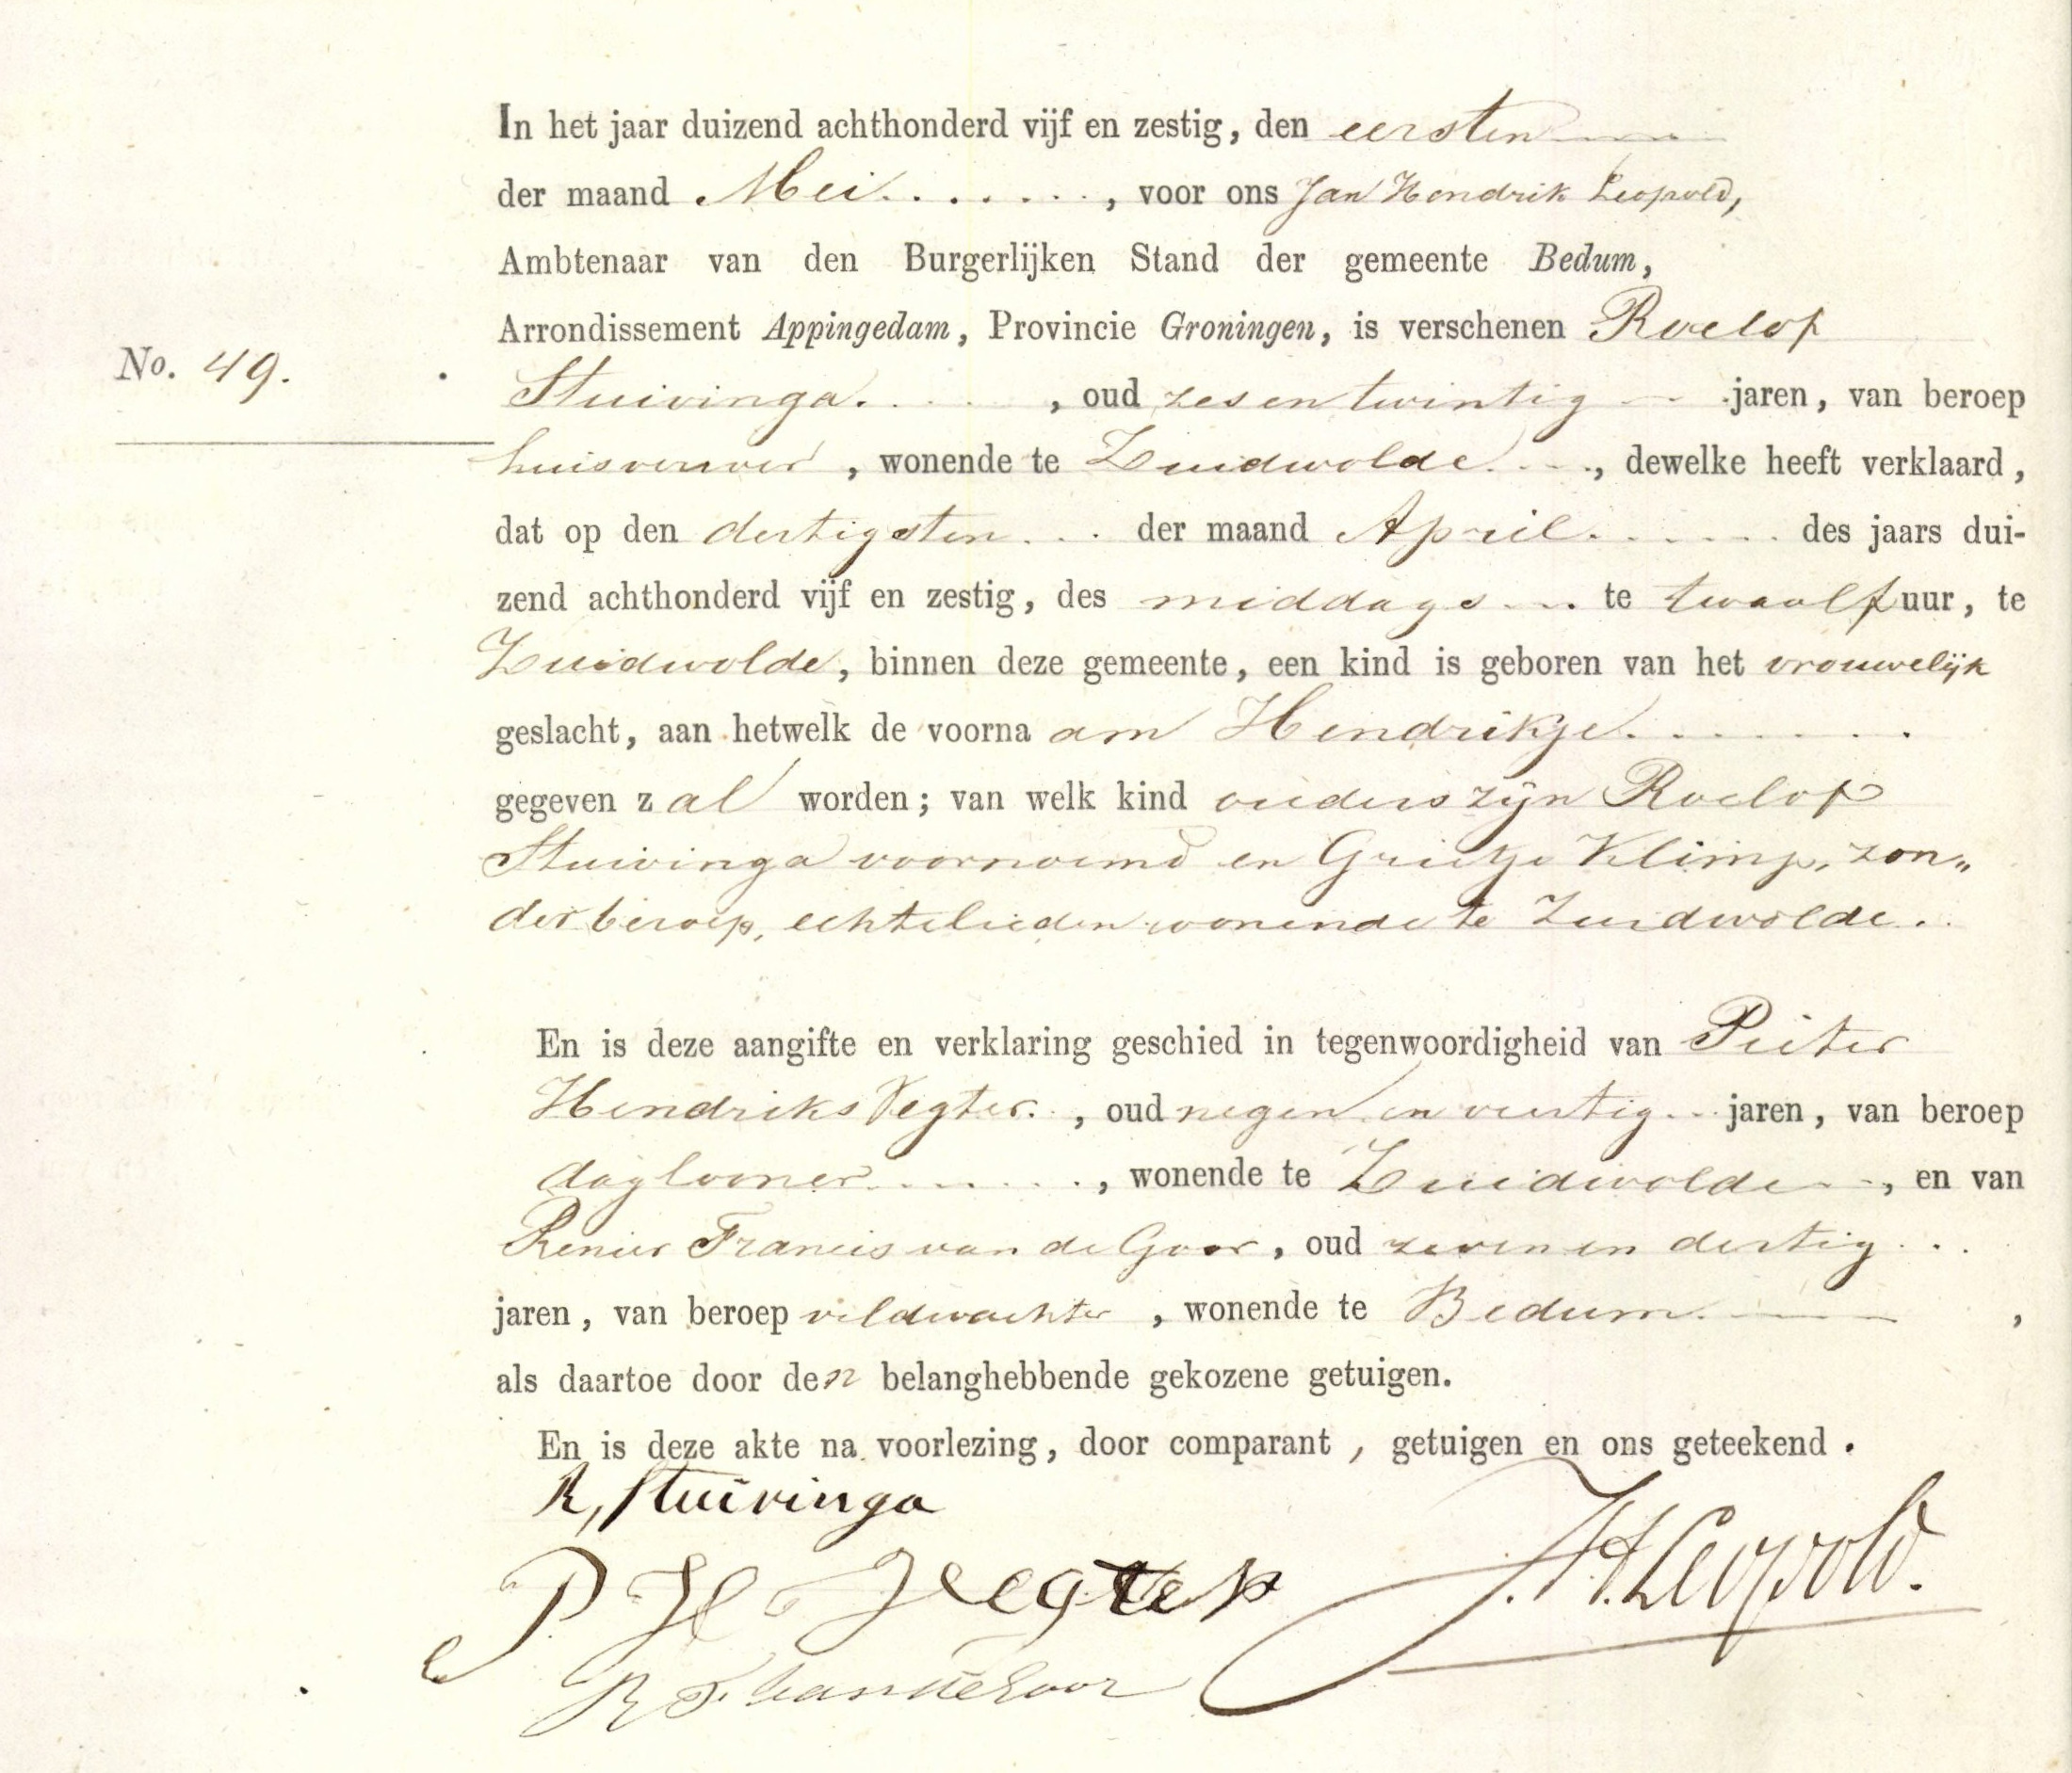 In het jaar duizend achthonderd vijf en zestig, den eersten
der maand Mei . . . . . . . , voor ons Jan Hendrik Leopold,
Ambtenaar van den Burgerlijken Stand der gemeente Bedum,
Arrondissement Appingedam, Provincie Groningen, is verschenen Roelof
No. 49.
Stuivinga. . . . . , oud zes en twintig jaren, van beroep
huisverver , wonende te Zuidwolde . . ., dewelke heeft verklaard,
dat op den dertigsten . . . der maand April . . . . . . des jaars dui-
zend achthonderd vijf en zestig, des middags . . . te twaalf uur, te
Zuidwolde, binnen deze gemeente, een kind is geboren van het vrouwelijk
geslacht, aan hetwelk de voorna am Hendrikje . . . . . . .
gegeven zal worden; van welk kind ouders zijn Roelof
Stuivinga voornoemd en Grietje Klimp, zon„
der beroep, echtelieden wonende te Zuidwolde.
En is deze aangifte en verklaring geschied in tegenwoordigheid van Pieter
Hendriks Vegter . , oud negen en veertig . . jaren, van beroep
daglooner . . . . . . , wonende te Zuidwolde . . , en van
Renier Francis van de Goor, oud zeven en dertig . . .
jaren, van beroep veldwachter , wonende te Bedum. ,
als daartoe door den belanghebbende gekozene getuigen.
En is deze akte na voorlezing, door comparant , getuigen en ons geteekend .
R, Stuivinga
P H Vegter
J. H. Leopold.
R F van de Goor